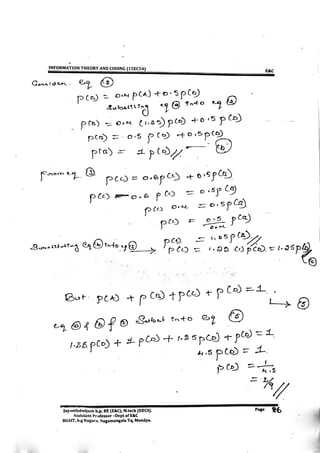 INFORMATION THEORY AND CODING (15EC54) E&C
Consider eq ②
p(B) = 0.4 p(A) + 0.5 p(D)
Substituting eq ⓐ into eq ②
p(B) = 0.4 (1.25) p(D) + 0.5 p(D)
p(B) = 0.5 p(D) + 0.5 p(D)
p(B) = 1 p(D) ⓑ
From eq ③ p(C) = 0.6 p(C) + 0.5 p(B)
p(C) - 0.6 p(C) = 0.5 p(B)
p(C) 0.4 = 0.5 p(B)
p(C) = 0.5 / 0.4 p(B)
p(C) = 1.25 p(B)
Substituting eq ⓑ into eq p(C) = 1.25 (1) p(D) = 1.25 p(D)
But p(A) + p(B) + p(C) + p(D) = 1. ⑤
eq ⓐ ⓑ Substi into eq ⑤
1.25 p(D) + 1 p(D) + 1.25 p(D) + p(D) = 1
4.5 p(D) = 1
p(D) = 1 / 4.5
= 2/9
BE (E&C), M.tech (DECS).
Assistant Professor - Dept of E&C
BGSIT, b.g Nagara, Nagamangala Tq, Mandya.
Page 86